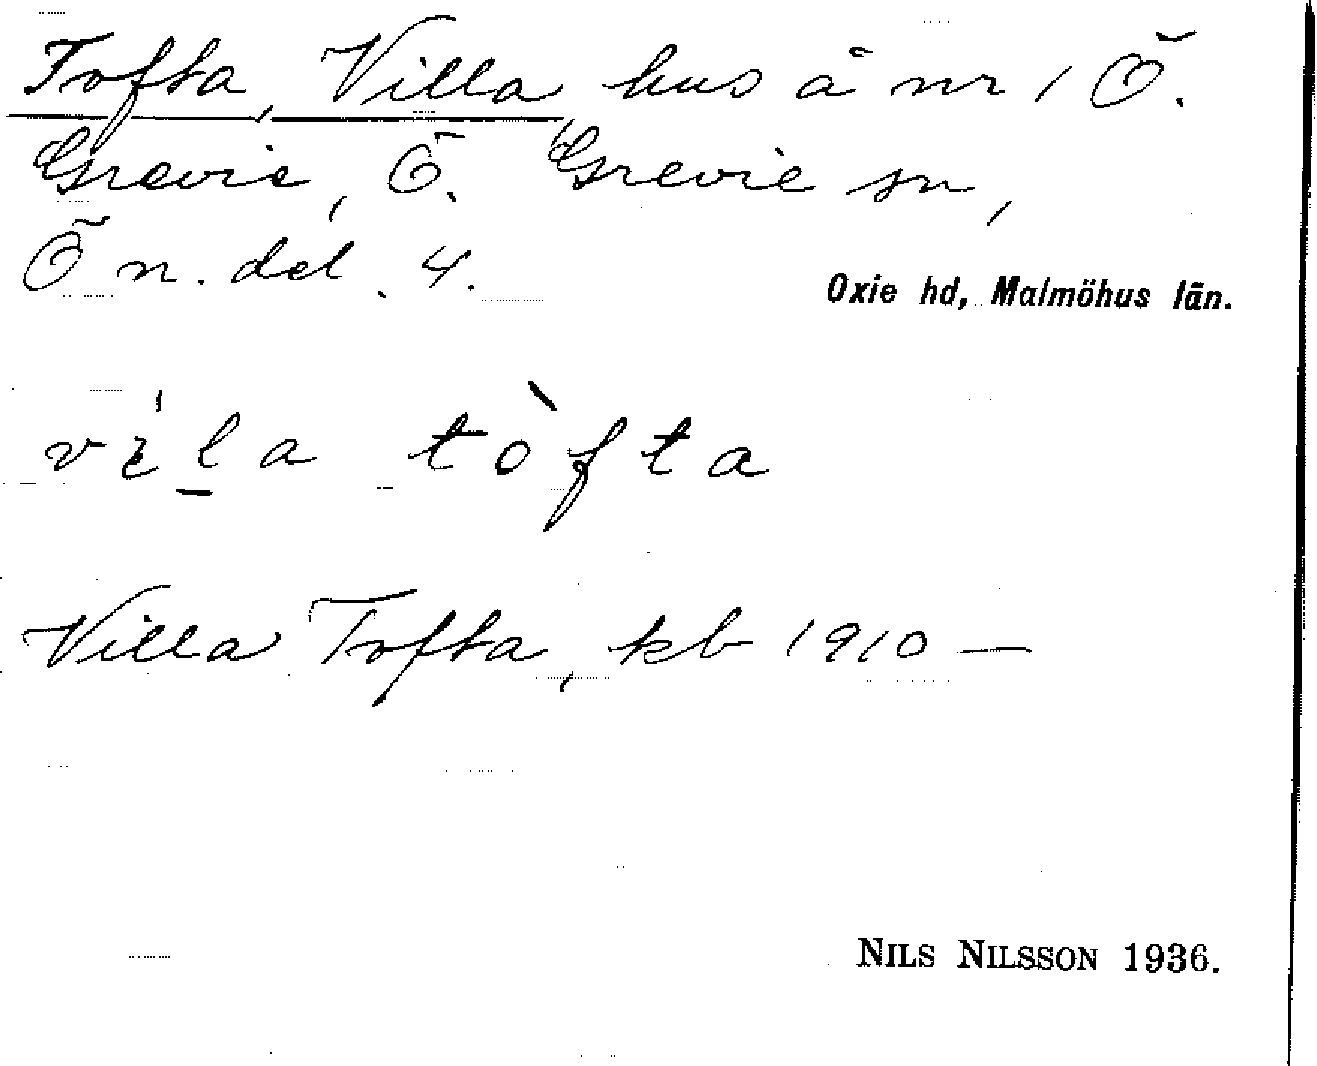 Tofta, Villa hus å nr 1 Ö.
Grevie, Ö. Grevie sn,
Ö n. del. 4.
Oxie hd, Malmöhus län.
vìla tòfta
Villa Tofta, kb 1910 —
NILS NILSSON 1936.